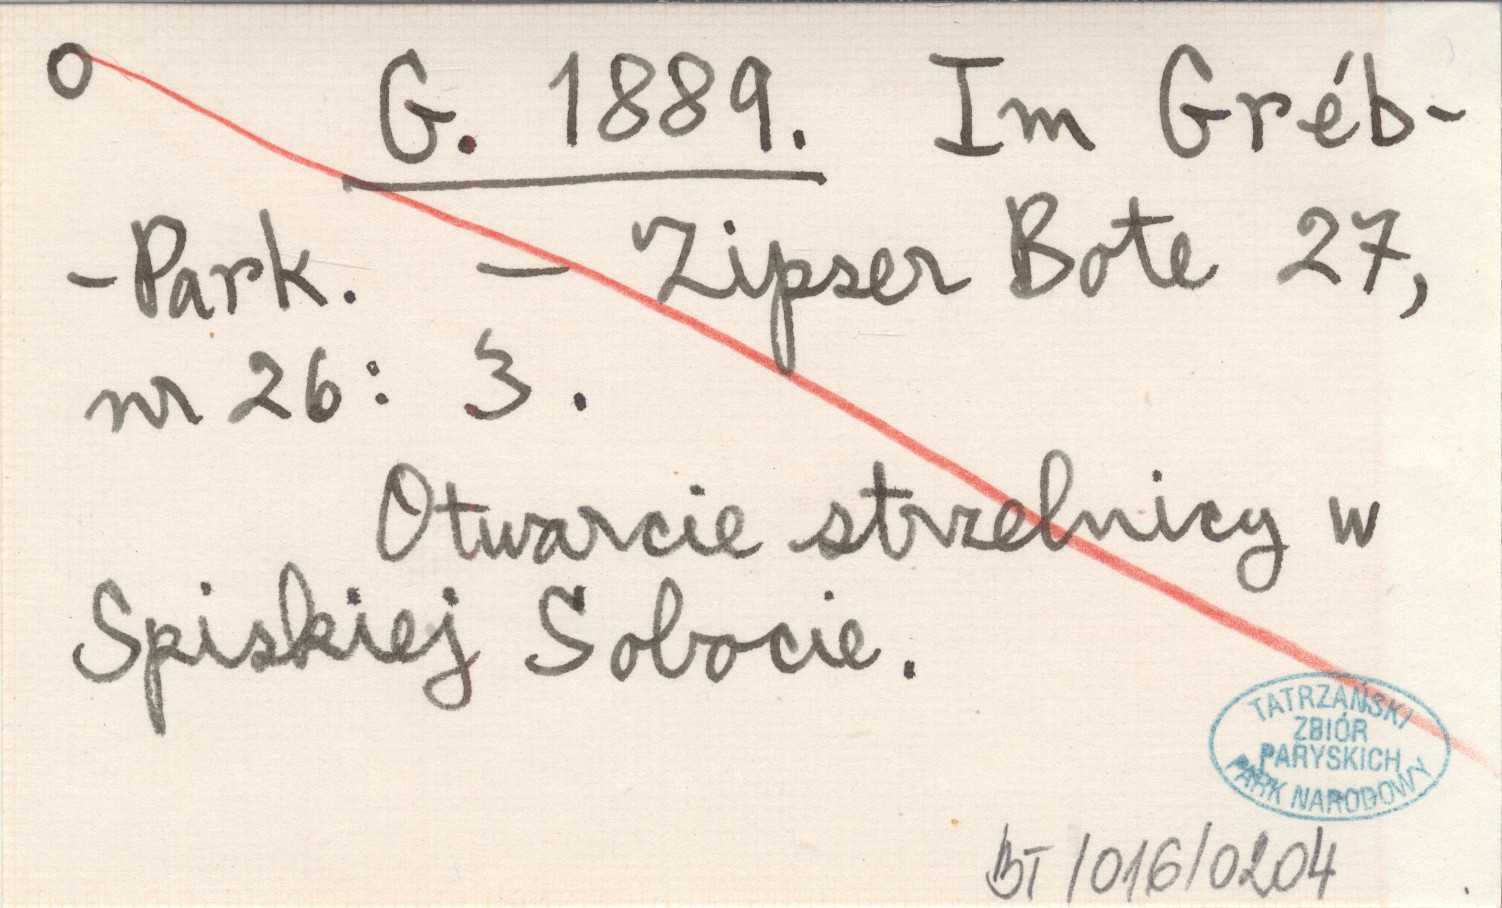 O G. 1889. Im Gréb-
-Park. — Zipser Bote 27,
nr 26: 3.
Otwarcie strzelnicy w
Spiskiej Sobocie.
TATRZAŃSKI
ZBIÓR
PARYSKICH
PARK NARODOWY
BT/016/0204